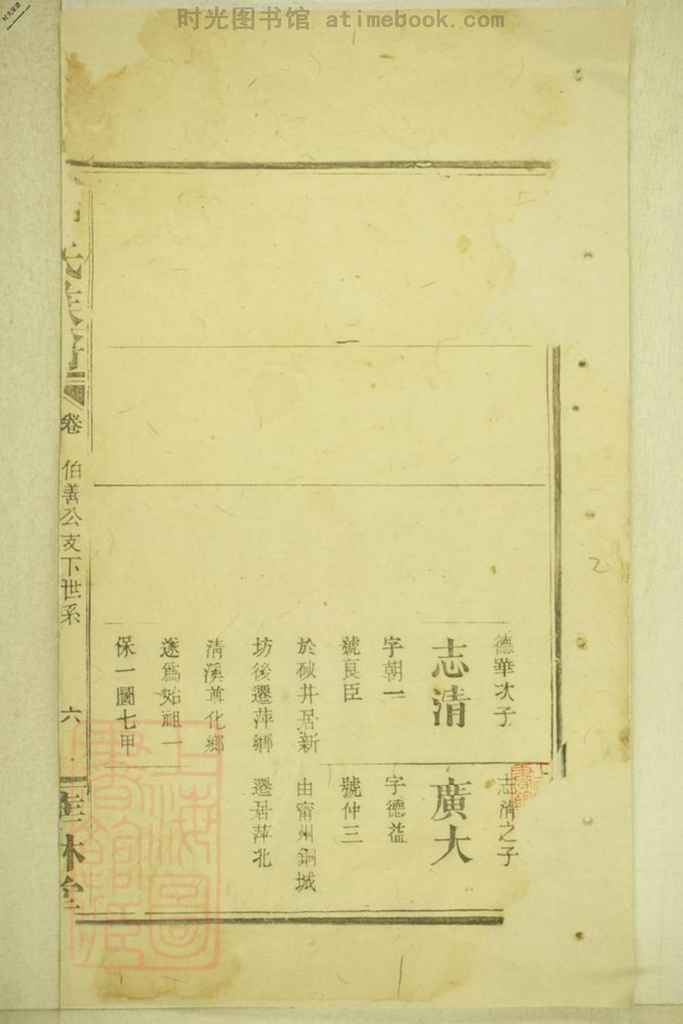 时光图书馆 atimebook.com
德華次子
志清
字朝一
號良臣
於砍井居新
坊後遷萍鄉
清溪尊化鄉
遂爲始祖一
保一圖七甲
志清之子
廣大
字德益
號仲三
由甯州銅城
遷居萍北
氏族譜
卷
伯善公支下世系
六
林堂